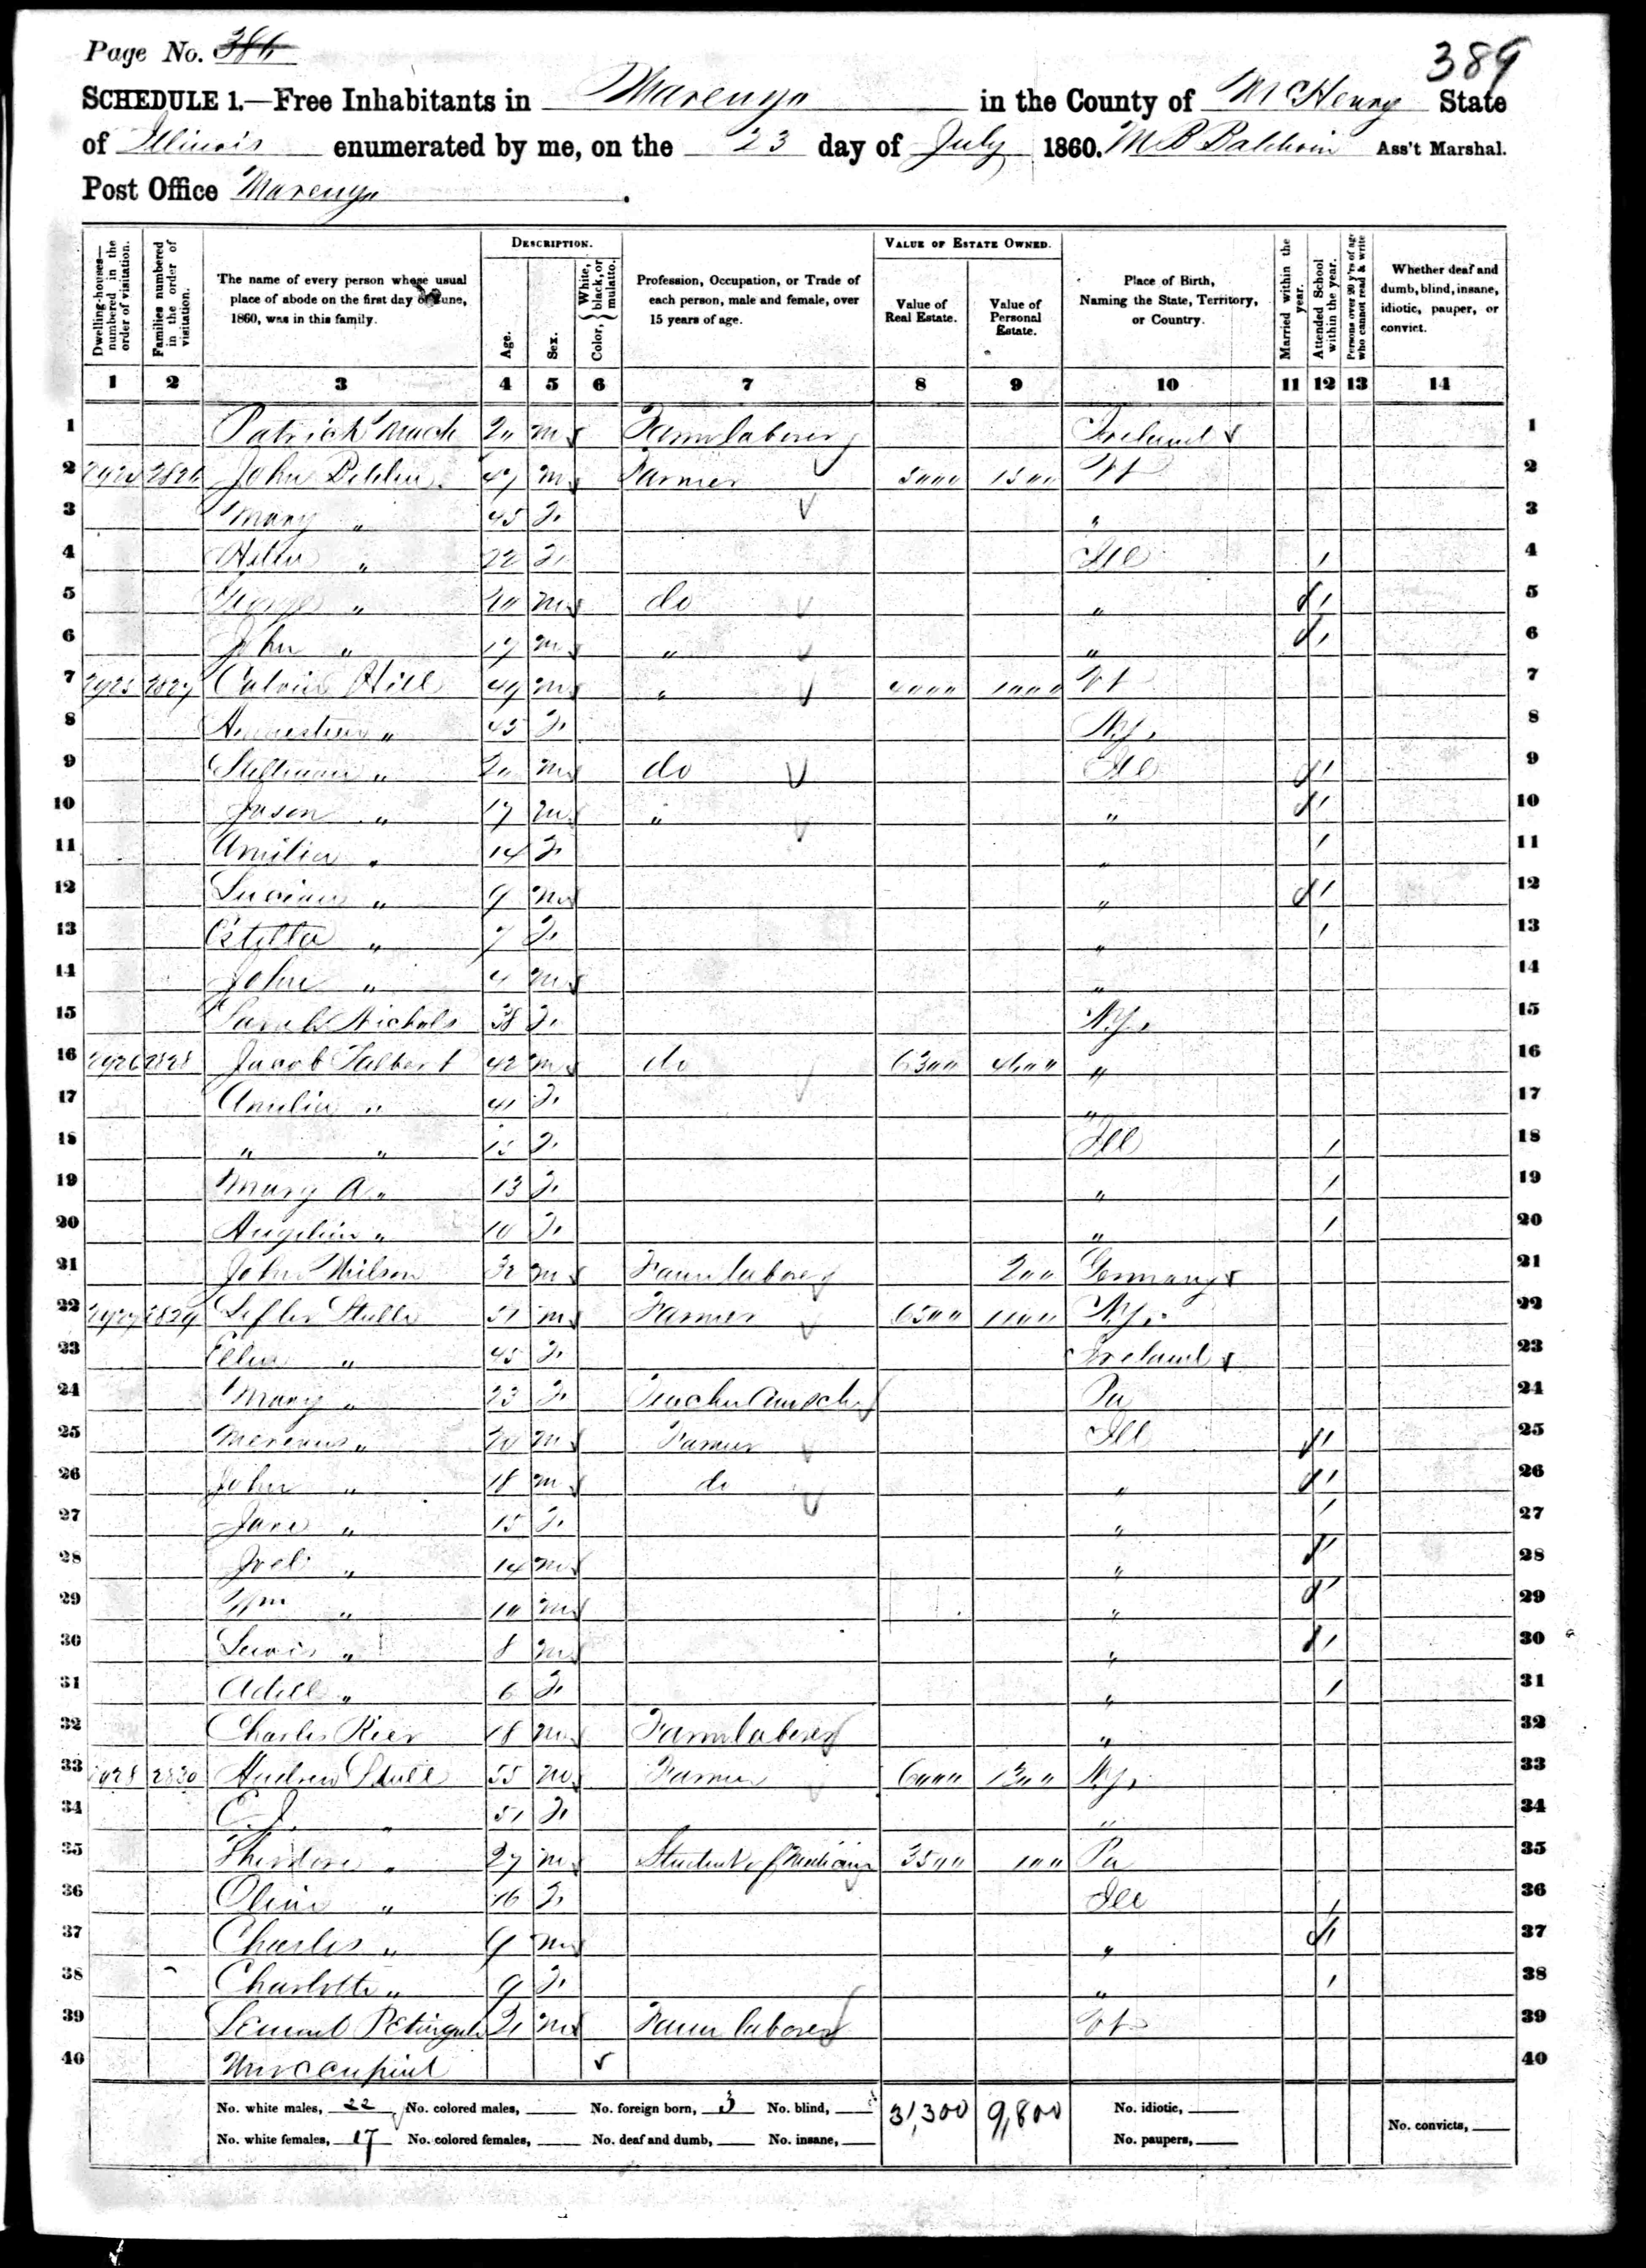 Page No. 386
389
SCHEDULE 1.—Free Inhabitants in Marengo in the County of McHenry State
of Illinois enumerated by me, on the 23 day of July 1860. M B Baldwin Ass't Marshal.
Post Office Marengo.
Dwelling-houses—numbered in the order of visitation.
Families numbered in the order of visitation.
The name of every person whose usual place of abode on the first day of June, 1860, was in this family.
DESCRIPTION.
Age.
Sex.
Color, { White, black, or mulatto.
Profession, Occupation, or Trade of each person, male and female, over 15 years of age.
VALUE OF ESTATE OWNED.
Value of Real Estate.
Value of Personal Estate.
Place of Birth, Naming the State, Territory, or Country.
Married within the year.
Attended School within the year.
Persons over 20 y'rs of age who cannot read & write
Whether deaf and dumb, blind, insane, idiotic, pauper, or convict.
1 2 3 4 5 6 7 8 9 10 11 12 13 14
1 Patrick 20 m Farm laborer Ireland 1
2 2826 John 47 m Farmer 5000 1500 Vt 2
3 Mary " 45 F. " 3
4 " 22 F. Ill / 4
5 George " 20 m do " / 5
6 John " 17 m " " / 6
7 2925 2827 Calvin Hill 49 m " 4000 1000 Vt 7
8 " 45 F. N.Y. 8
9 Stillman " 20 m do Ill / 9
10 Jason " 17 m " " / 10
11 Amilia " 14 F. " / 11
12 Lucian " 9 m " / 12
13 Estella " 7 F. " / 13
14 John " 4 m " 14
15 Sarah Nichols 38 F. N.Y. 15
16 2926 2828 Jacob Talbert 42 m do 6300 " 16
17 Amelia " 41 F. " 17
18 " " 15 F. Ill / 18
19 Mary A. " 13 F. " / 19
20 Angeline " 10 F. " / 20
21 John Wilson 32 m Farm laborer 200 Germany 21
22 2927 2829 51 m Farmer 6500 1100 N.Y. 22
23 Ellen " 45 F. Ireland 23
24 Mary " 23 F. Pa 24
25 " 20 m Farmer Ill / 25
26 John " 18 m do " / 26
27 Jane " 15 F. " / 27
28 Joel " 14 m " / 28
29 Wm " 10 m " / 29
30 Lewis " 8 m " / 30
31 Adell " 6 F. " / 31
32 Charles Rier 18 m Farm laborer " 32
33 2928 2830 Andrew Stull 55 m Farmer 6000 1300 N.Y. 33
34 " 51 F. " 34
35 Theodore " 27 m Student of Medicine 3500 100 Pa 35
36 Olive " 16 F. Ill / 36
37 Charles " 9 m " / 37
38 Charlotte " 9 F. " / 38
39 21 m Farm laborer Vt 39
40 Unoccupied 40
No. white males, 22 No. colored males, No. foreign born, 3 No. blind, 31,300 9,800 No. idiotic,
No. white females, 17 No. colored females, No. deaf and dumb, No. insane, No. paupers, No. convicts,